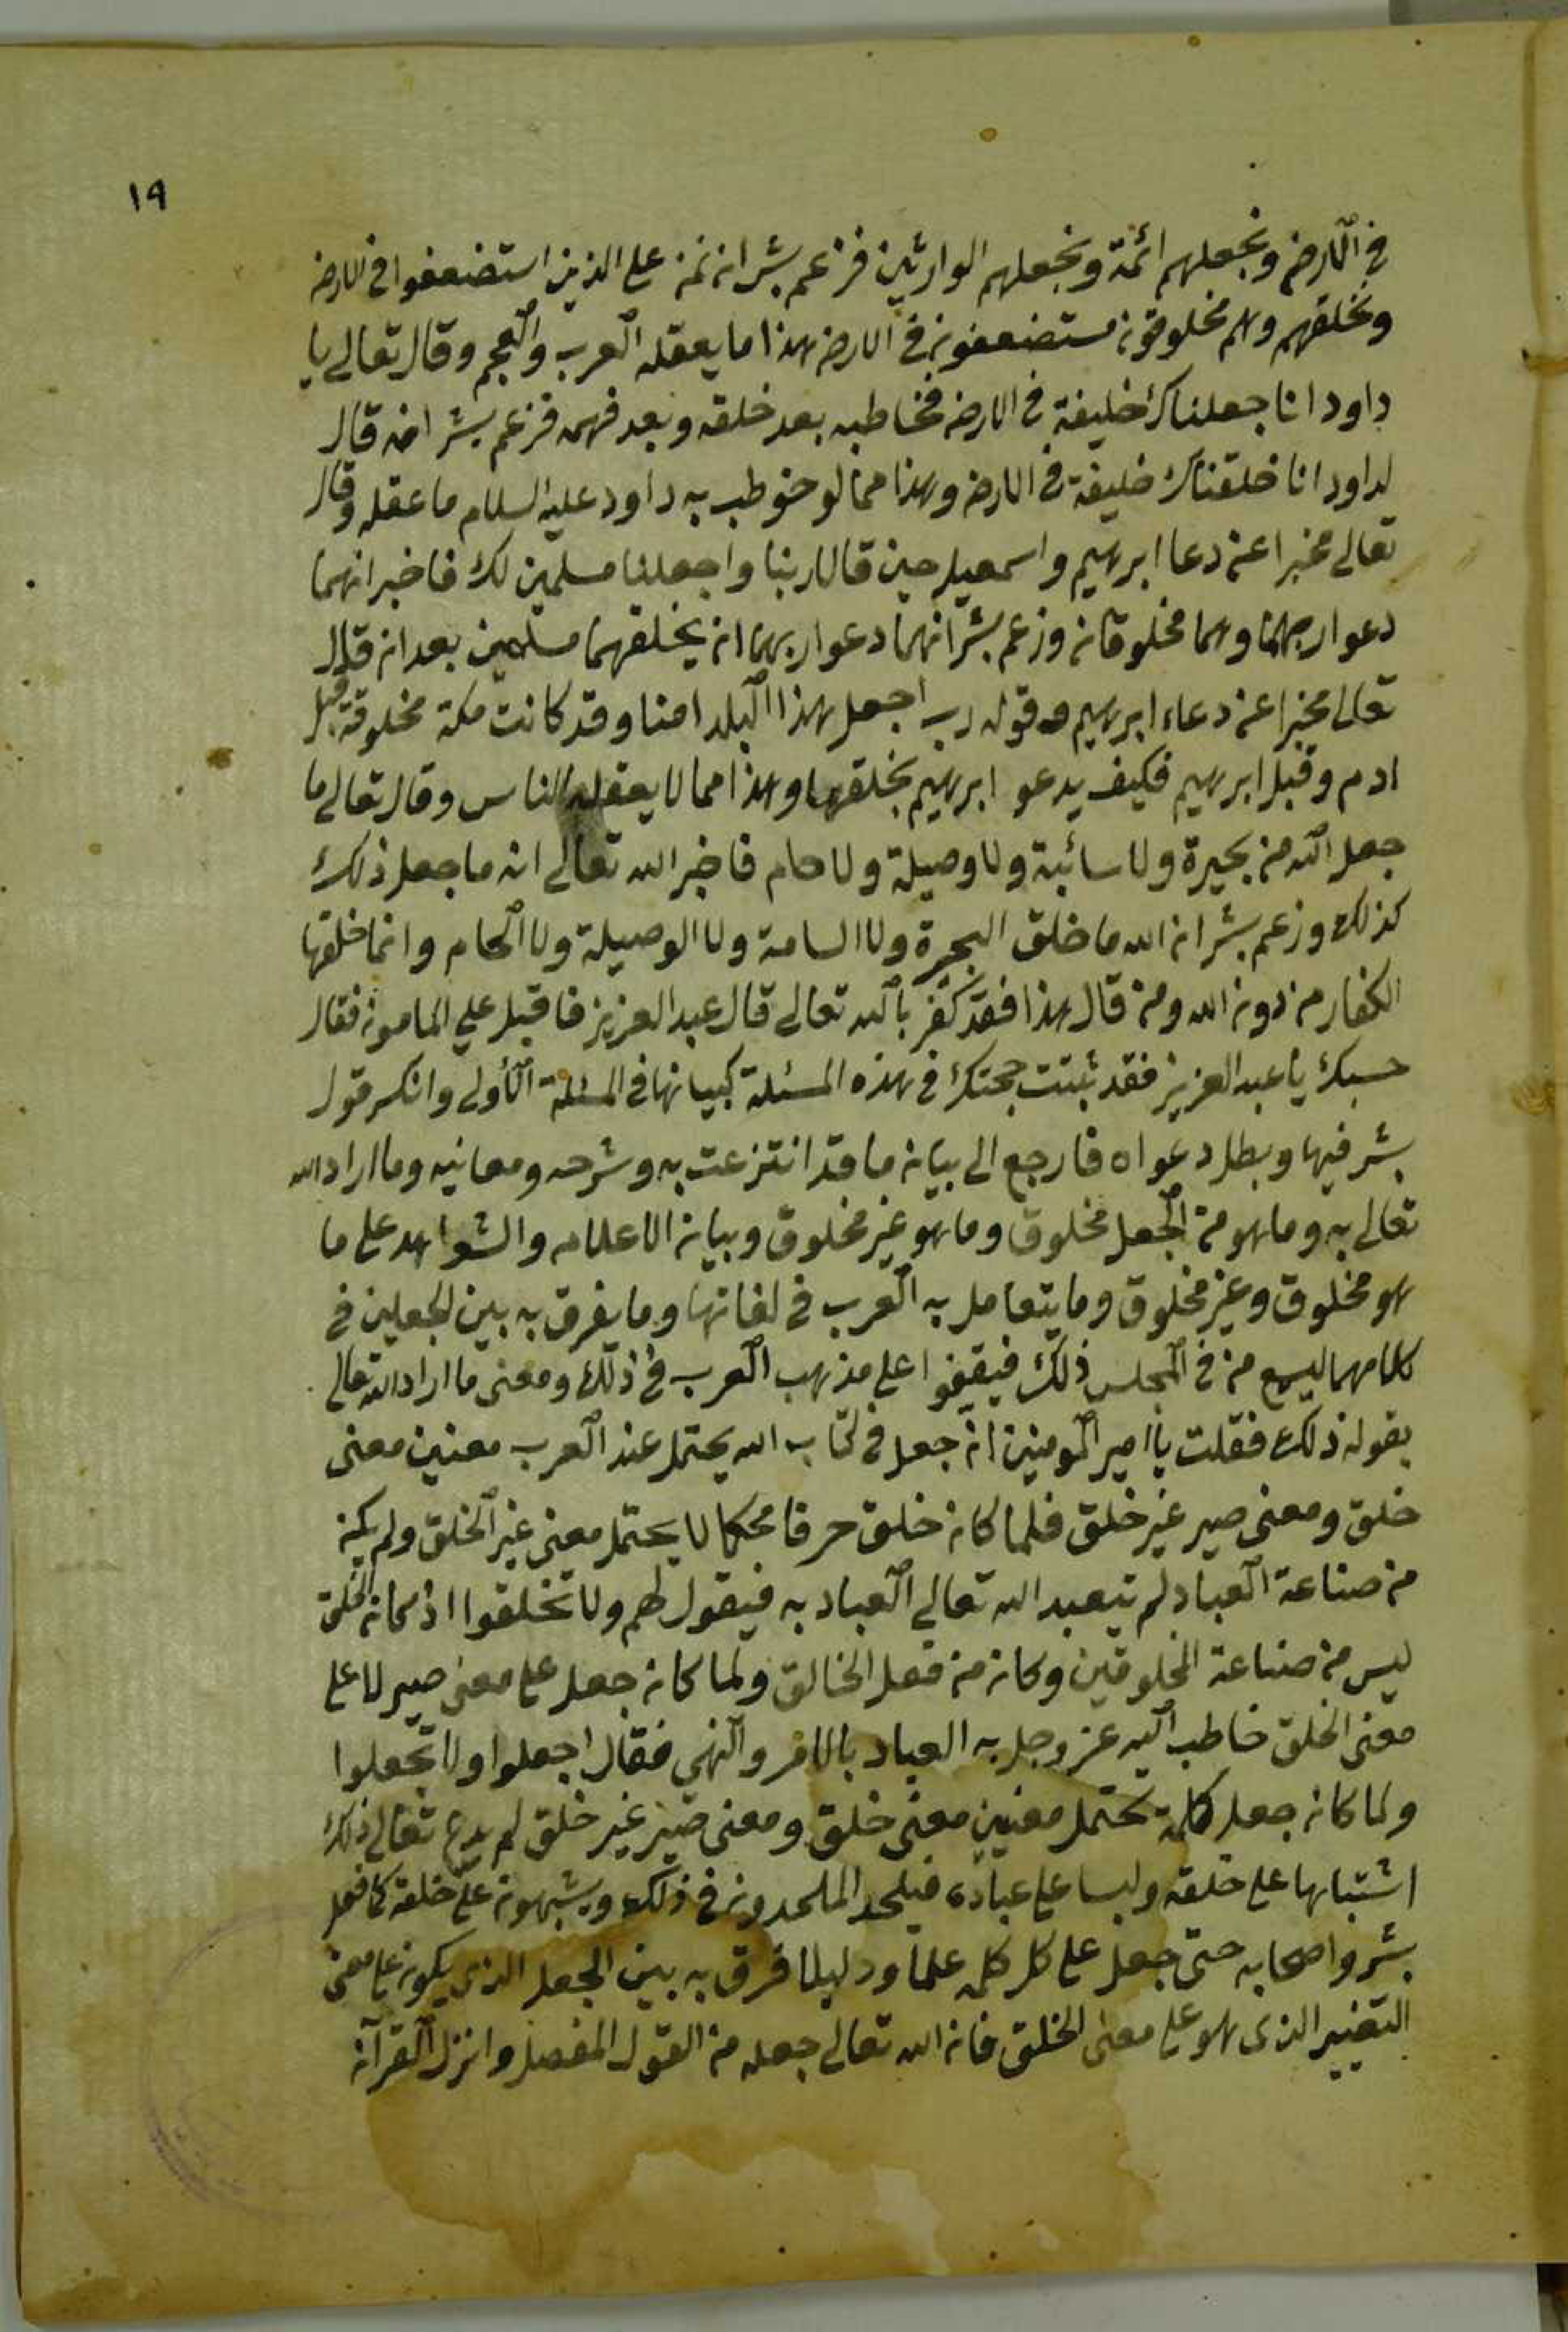 ١٩
في الارض ونجعلهم ائمة ونجعلهم الوارثين فزعم بشر انه نمن على الذين استضعفوا في الارض
ونخلقهم وهم مخلوقون مستضعفون في الارض هذا ما يعقله العرب والعجم وقال تعالى يا
داود انا جعلناك خليفة في الارض فخاطبه بعد خلقه وبعد فهمه فزعم بشر انه قال
لداود انا خلقناك خليفة في الارض وهذا مما لو خوطب به داود عليه السلام ما عقله وقال
تعالى مخبرا عن دعا ابرهيم واسمعيل حين قالا ربنا واجعلنا مسلمين لك فاخبر انهما
دعوا ربهما وهما مخلوقان وزعم بشر انهما دعوا ربهما ان يخلقهما مسلمين بعد ان قال
تعالى مخبرا عن دعاء ابرهيم وقوله رب اجعل هذا البلد امنا وقد كانت مكة مخلوقة قبل
ادم وقبل ابرهيم فكيف يدعو ابرهيم بخلقها وهذا مما لا يعقله الناس وقال تعالى ما
جعل الله من بحيرة ولا سائبة ولا وصيلة ولا حام فاخبر الله تعالى انه ما جعل ذلك
كذلك وزعم بشر ان الله ما خلق البحيرة ولا السامة ولا الوصيلة ولا الحام وانما خلقها
الكفار من دون الله ومن قال هذا فقد كفر بالله تعالى قال عبد العزيز فاقبل علي المامون فقال
حسبك يا عبد العزيز فقد ثبتت حجتك في هذه المسئلة كبيانها في المسئلة الأولى وانكسر قول
بشر فيها وبطل دعواه فارجع الى بيان ما قد انتزعت به وشرحه ومعانيه وما اراد الله
تعالى به وما هو من الجعل مخلوق وما هو غير مخلوق وبيان الاعلام والشواهد على ما
هو مخلوق وغير مخلوق وما يتعامل به العرب في لغاتها وما يفرق به بين الجعلين في
كلامهما ليسمع من في المجلس ذلك فيقفوا على مذهب العرب في ذلك ومعنى ما اراد الله تعالى
بقوله ذلك فقلت يا امير المومنين ان جعل في كتاب الله يحتمل عند العرب معنين معنى
خلق ومعنى صير غير خلق فلما كان خلق حرفا محكما لا يحتمل معنى غير الخلق ولم يكن
من صناعة العباد لم يتعبد الله تعالى العباد به فيقول لهم ولا تخلقوا اذ كان الخلق
ليس من صناعة المخلوقين وكان من فعل الخالق ولما كان جعل على معنى صير لا على
معنى الخلق خاطب الله عز وجل به العباد بالامر والنهي فقال اجعلوا ولا تجعلوا
ولما كان جعل كلمة تحتمل معنيين معنى خلق ومعنى صير غير خلق لم يدع تعالى ذلك
اشتباها على خلقه ولبسا على عباده فيلحد الملحدون في ذلك ويشبهون على خلقه كما فعل
بشر واصحابه حتى جعل على كل كلمة علما ودليلا فرق به بين الجعل الذي يكون على معنى
التغيير الذي هو على معنى الخلق فان الله تعالى جعله من القول المفصل وانزل القرآن